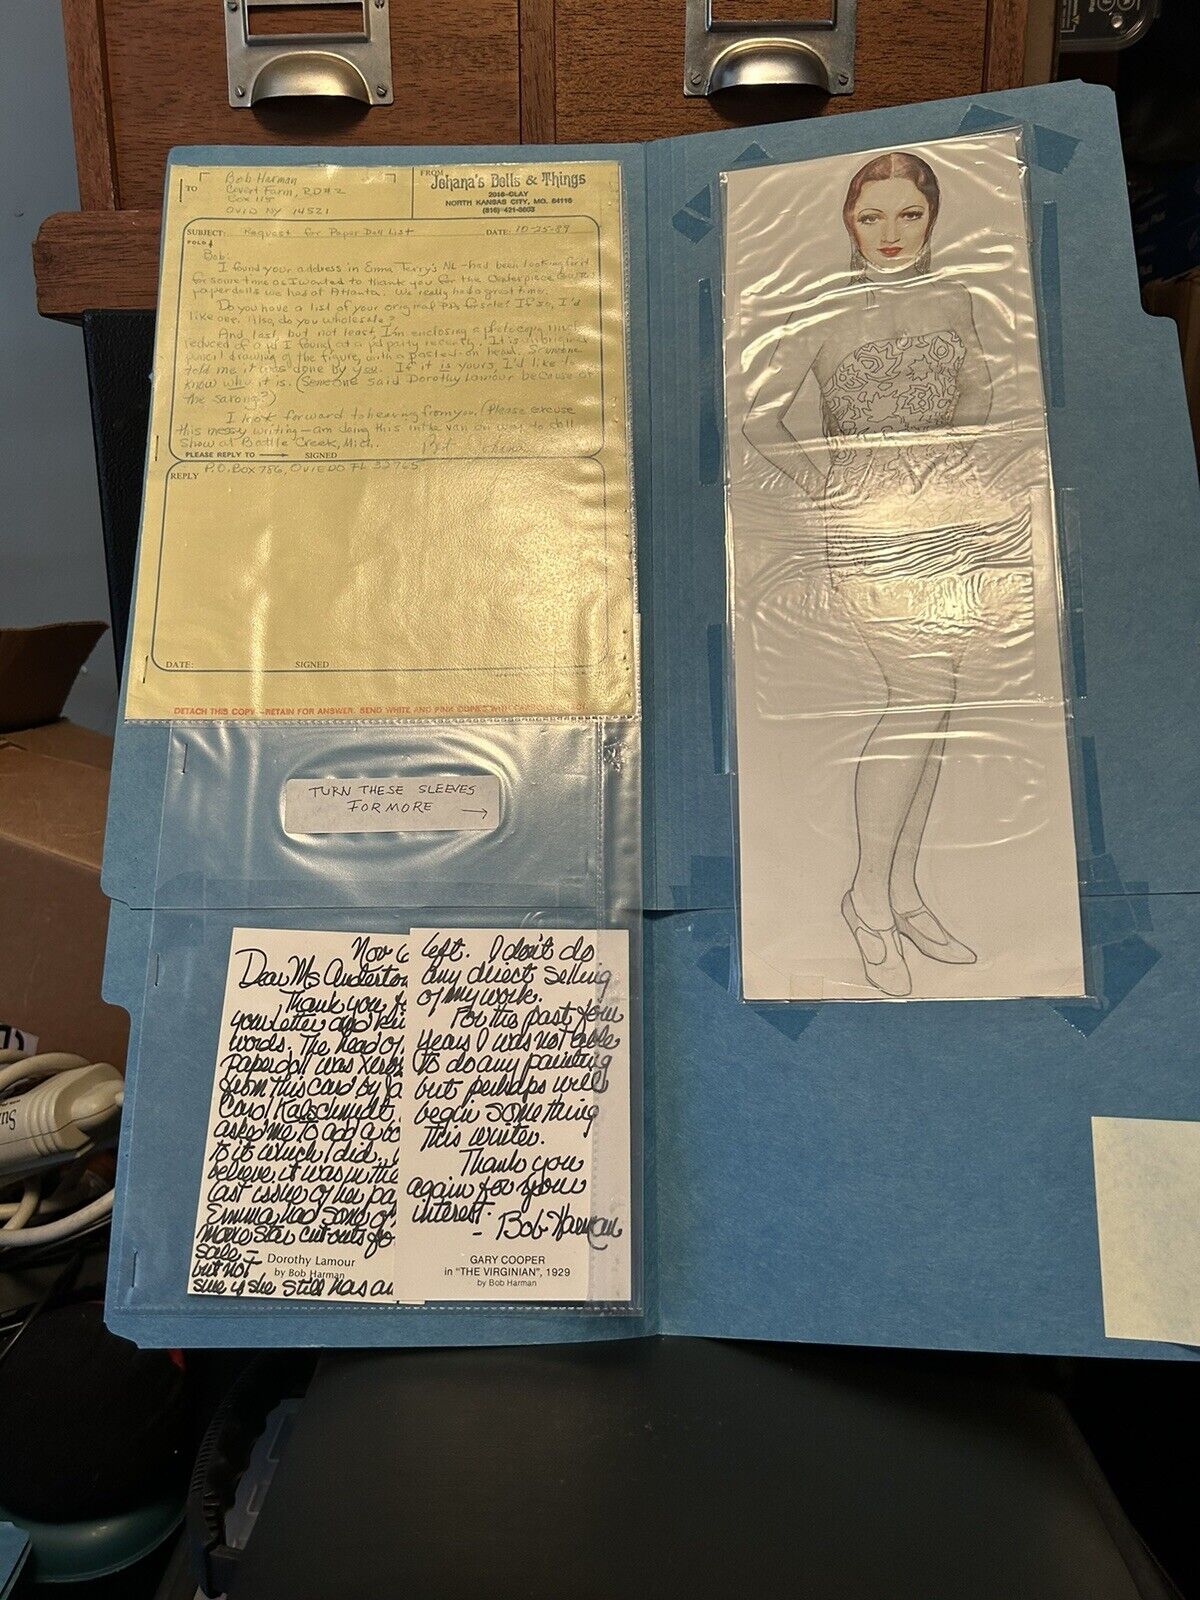 TO
Bob Harman
Covert Farm, RD#2
Box 115
Ovid NY 14521
FROM
Johana's Dolls & Things
2016 CLAY
NORTH KANSAS CITY, MO. 64116
(816) 421-5603
SUBJECT: Request for Paper Doll List DATE: 10-25-89
FOLD
Bob:
I found your address in Emma Terry's NL - had been looking for it
for some time as I wanted to thank you for the Centerpiece
paperdolls we had at Atlanta. We really had a great time.
Do you have a list of your original PDs for sale? If so, I'd
like one. Also, do you wholesale?
And last, but not least, I'm enclosing a photocopy much
reduced of a pd I found at a pd party recently. It is
pencil drawing of the figure, with a pasted-on head. Someone
told me it was done by you. If it is yours, I'd like to
know who it is. (Someone said Dorothy Lamour because of
the sarong?)
I look forward to hearing from you. (Please excuse
this messy writing - am doing this in the van on way to doll
show at Battle Creek, Mich.
PLEASE REPLY TO SIGNED
P.O. Box 786, OVIEDO FL 32765
REPLY
DATE: SIGNED
DETACH THIS COPY - RETAIN FOR ANSWER. SEND WHITE AND PINK COPIES WITH
TURN THESE SLEEVES
FOR MORE →
Nov 6
Dear Ms Anderton
Thank you
your letter and
words. The head of
paperdoll was
from this card by
Carol Kalschmidt.
asked me to add a
to it which I did.
believe it was in the
last issue of her
Emma had some of
movie star cut-outs
sale -
but not
sure if she still has
Dorothy Lamour
by Bob Harman
left. I don't do
any direct selling
of my work.
For the past four
years I was not able
to do any painting
but perhaps will
begin something
this winter.
Thank you
again for your
interest.
- Bob Harman
GARY COOPER
in "THE VIRGINIAN", 1929
by Bob Harman